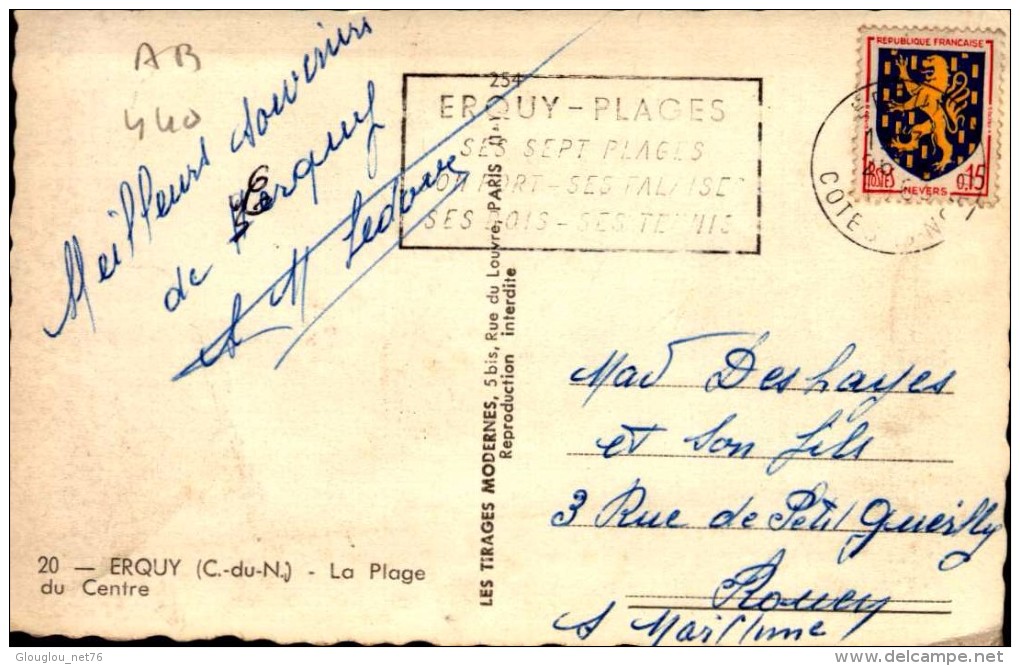 AB
440
Meilleurs souvenirs
de Erquy
M Ledoux
254
ERQUY – PLAGES
SES SEPT PLAGES
SON PORT – SES FALAISES
SES BOIS – SES TENNIS
REPUBLIQUE FRANÇAISE
POSTES NEVERS 0,15
COTES DU NORD
LES TIRAGES MODERNES, 5 bis, Rue du Louvre, PARIS
Reproduction interdite
Mad Deshayes
et son fils
3 Rue de Petit Quevilly
Rouen
S Maritime
20 — ERQUY (C.-du-N.) - La Plage
du Centre
Glouglou_net76
delcampe.net